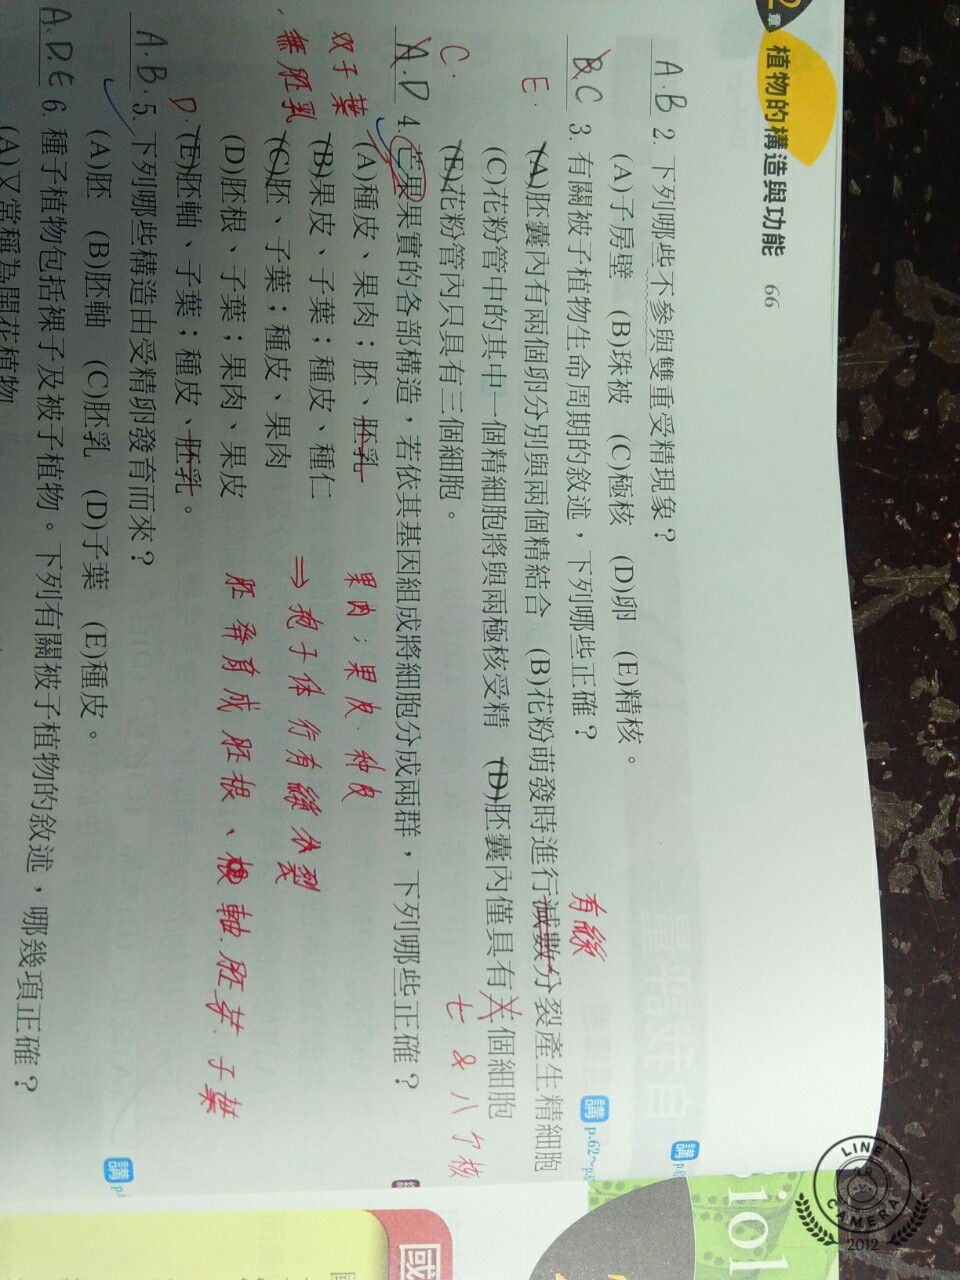 2章 植物的構造與功能 66
A.B 2. 下列哪些不參與雙重受精現象?
講 p.6
(A)子房壁 (B)珠被 (C)極核 (D)卵 (E)精核。
B.C 3. 有關被子植物生命周期的敘述,下列哪些正確?
講 p.62~p.6
有絲
E.
(A)胚囊內有兩個卵分別與兩個精結合 (B)花粉萌發時進行減數分裂產生精細胞
(C)花粉管中的其中一個精細胞將與兩極核受精 (D)胚囊內僅具有六個細胞
七 & 八个核
(E)花粉管內只具有三個細胞。
C.
A.D 4. 芒果果實的各部構造,若依其基因組成將細胞分成兩群,下列哪些正確?
双子葉
無胚乳
(A)種皮、果肉;胚、胚乳
果肉;果皮、种皮
(B)果皮、子葉;種皮、種仁
(C)胚、子葉;種皮、果肉
⇒ 孢子体行有絲分裂
(D)胚根、子葉;果肉、果皮
胚發育成胚根、軸.胚芽.子葉
(E)胚軸、子葉;種皮、胚乳。
D.
A.B. 5. 下列哪些構造由受精卵發育而來?
講
(A)胚 (B)胚軸 (C)胚乳 (D)子葉 (E)種皮。
A.D.E 6. 種子植物包括裸子及被子植物。下列有關被子植物的敘述,哪幾項正確?
(A)又常稱為開花植物
iol
國
LINE
CAMERA
2012